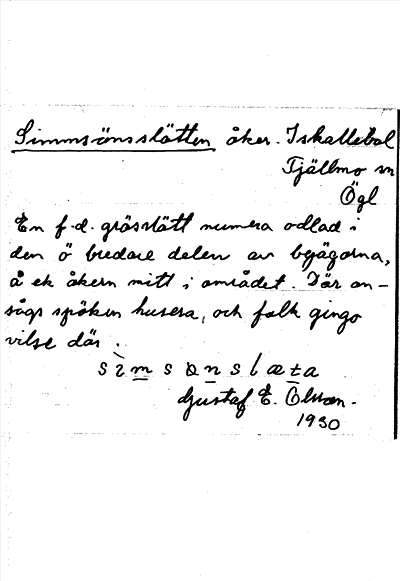 Simmsönsslätten åker. Iskallebol
Tjällmo sn
Ögl
En f.d. grässlätt numera odlad i
den ö bredare delen av beägorna,
å ek åkern mitt i området. Där an-
sågs spöken husera, och folk gingo
vilse där.
Gustaf E. Olsson.
1930